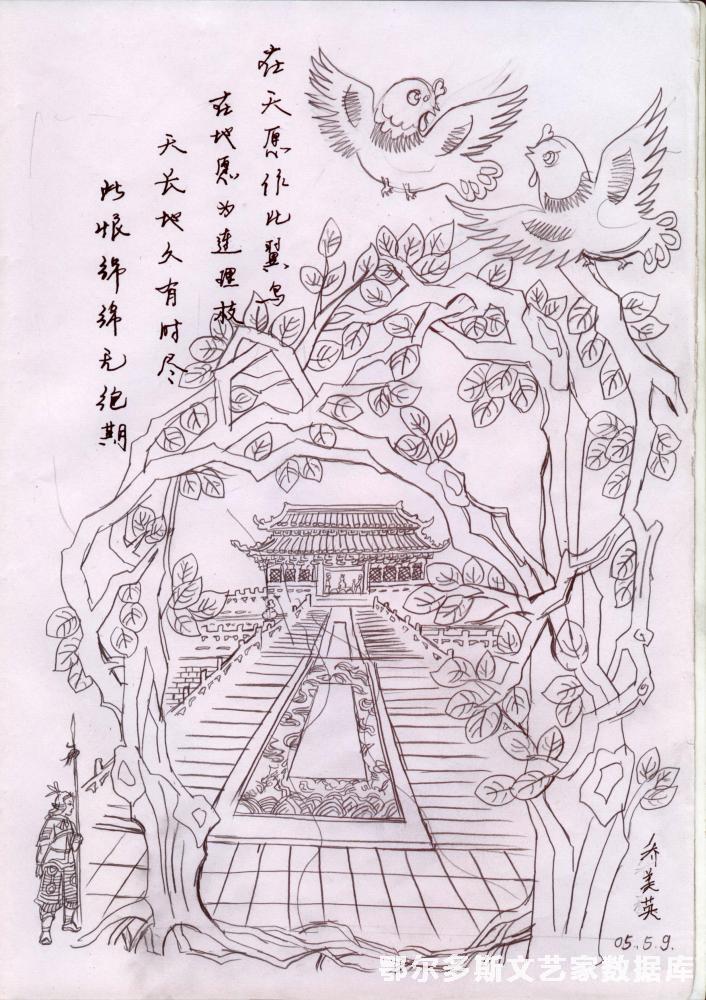 在天愿作比翼鸟
在地愿为连理枝
天长地久有时尽
此恨绵绵无绝期
乔美英
05.5.9.
鄂尔多斯文艺家数据库